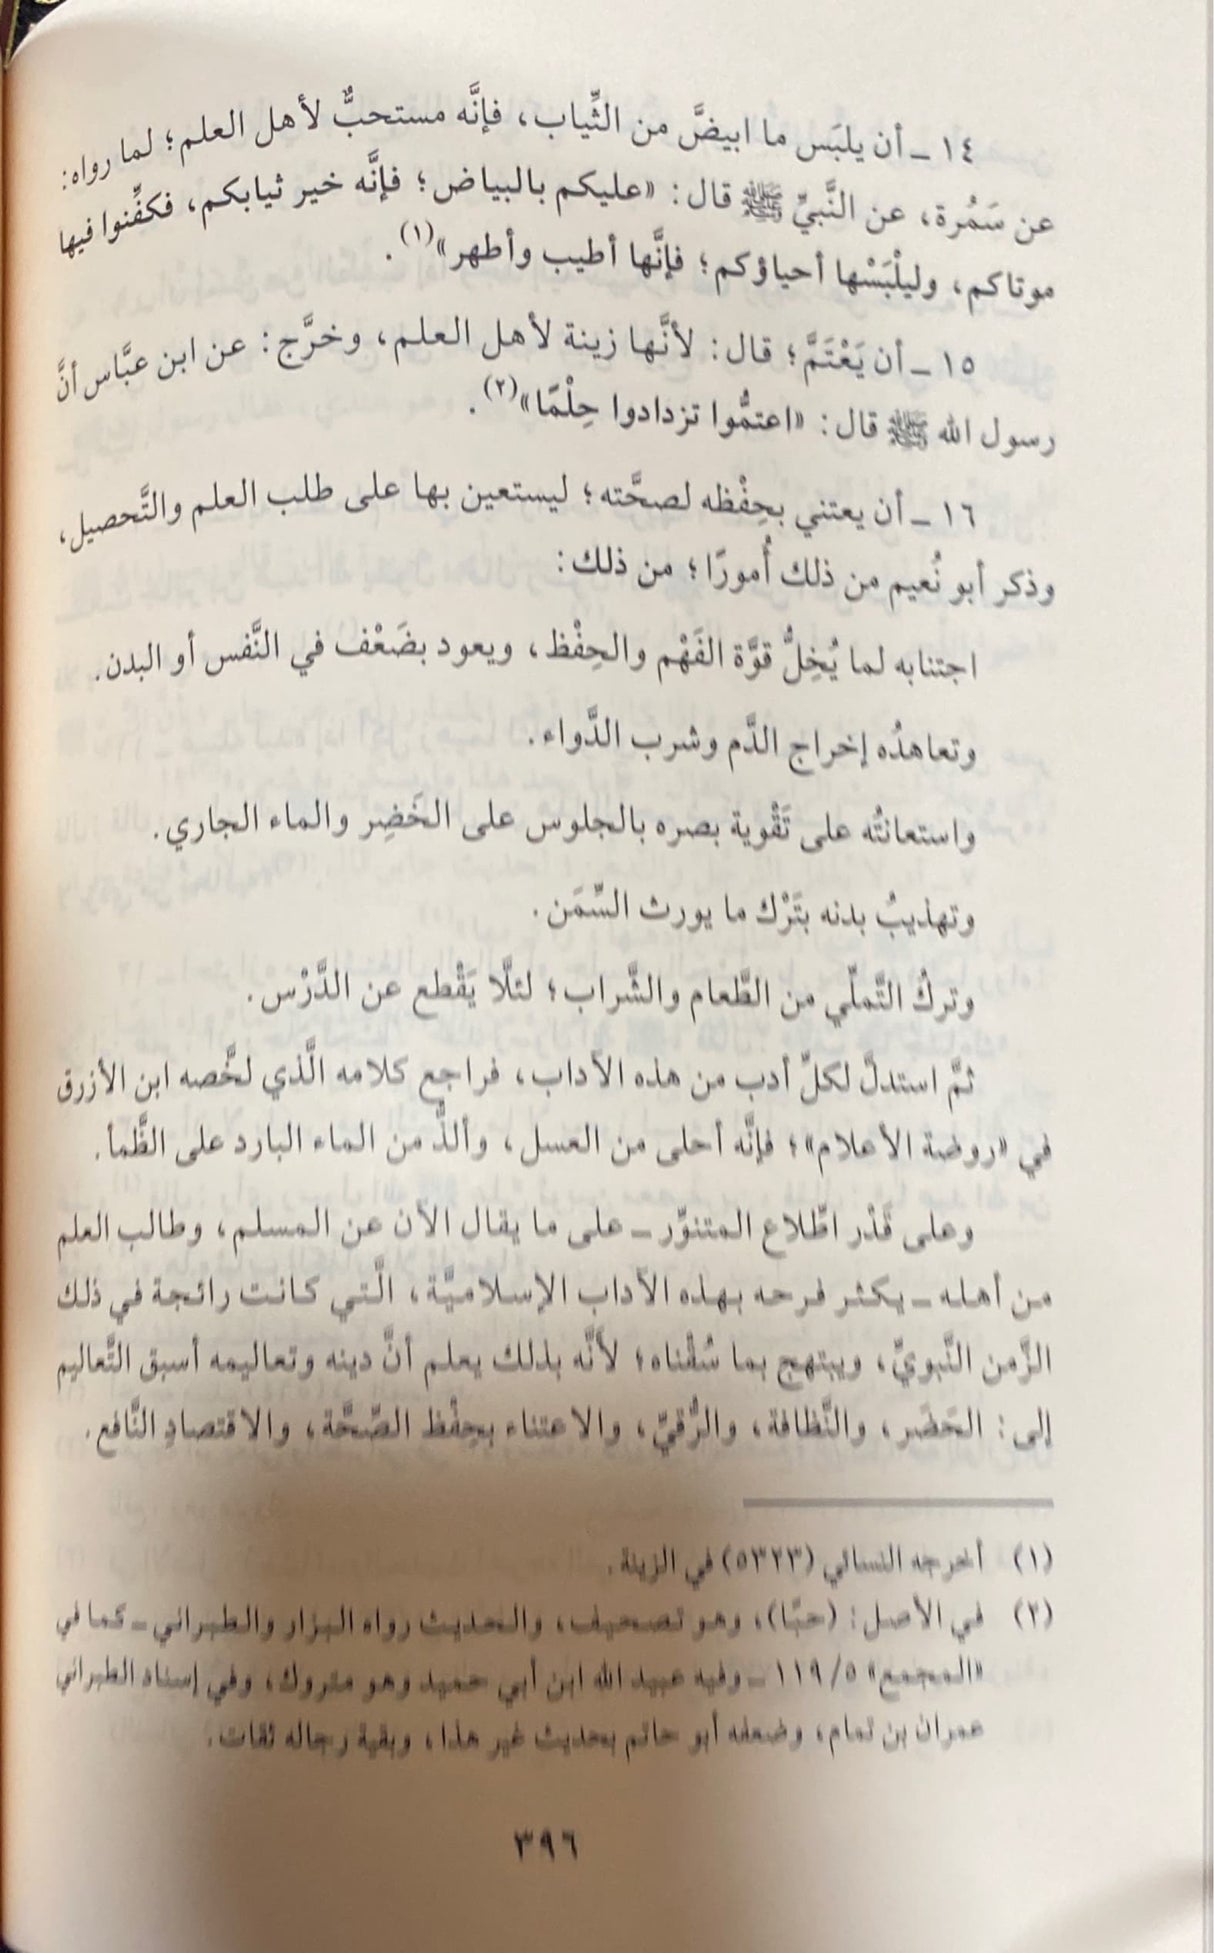 ١٤ ـ أن يلبَس ما ابيضَّ من الثِّياب، فإنَّه مستحبٌّ لأهل العلم؛ لما رواه:
عن سَمُرة، عن النَّبيِّ ﷺ قال: «عليكم بالبياض؛ فإنَّه خير ثيابكم، فكفِّنوا فيها
موتاكم، وليلْبَسْها أحياؤكم؛ فإنَّها أطيب وأطهر»(١).
١٥ ـ أن يَعْتَمَّ؛ قال: لأنَّها زينة لأهل العلم، وخرَّج: عن ابن عبَّاس أنَّ
رسول الله ﷺ قال: «اعتمُّوا تزدادوا حِلْمًا»(٢).
١٦ ـ أن يعتني بحِفْظه لصحَّته؛ ليستعين بها على طلب العلم والتَّحصيل،
وذكر أبو نُعيم من ذلك أُمورًا؛ من ذلك:
اجتنابه لما يُخِلُّ قوَّة الفَهْم والحِفْظ، ويعود بضَعْف في النَّفس أو البدن.
وتعاهدُه إخراج الدَّم وشرب الدَّواء.
واستعانتُه على تَقْوية بصره بالجلوس على الخَضِر والماء الجاري.
وتهذيبُ بدنه بتَرْك ما يورث السِّمَن.
وتركُ التَّملِّي من الطَّعام والشَّراب؛ لئلَّا يَقْطع عن الدَّرْس.
ثمَّ استدلَّ لكلِّ أدب من هذه الآداب، فراجع كلامه الَّذي لخَّصه ابن الأزرق
في «روضة الأعلام»؛ فإنَّه أحلى من العسل، وألذُّ من الماء البارد على الظَّمأ.
وعلى قَدْر اطِّلاع المتنوِّر ـ على ما يقال الآن عن المسلم، وطالب العلم
من أهله ـ يكثر فرحه بهذه الآداب الإسلاميَّة، الَّتي كانت رائجة في ذلك
الزَّمن النَّبويِّ، ويبتهج بما سُقْناه؛ لأنَّه بذلك يعلم أنَّ دينه وتعاليمه أسبق التَّعاليم
إلى: الحَضَر، والنَّظافة، والرُّقيِّ، والاعتناء بحِفْظ الصِّحَّة، والاقتصادِ النَّافع.
(١) أخرجه النسائي (٥٣٢٣) في الزينة.
(٢) في الأصل: (حبًّا)، وهو تصحيف، والحديث رواه البزار والطبراني ـ كما في
«المجمع» ١١٩/٥ ـ وفيه عبيد الله ابن أبي حميد وهو متروك، وفي إسناد الطبراني
عمران بن تمام، وضعفه أبو حاتم بحديث غير هذا، وبقية رجاله ثقات.
٣٩٦